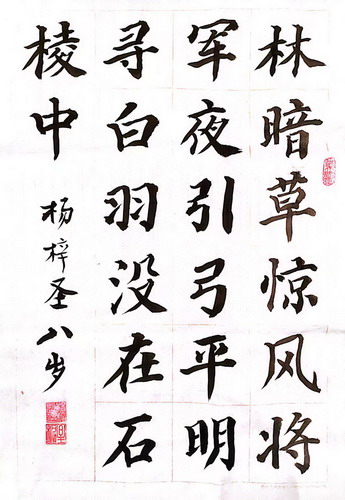 林暗草惊风将
军夜引弓平明
寻白羽没在石
棱中
杨梓圣八岁